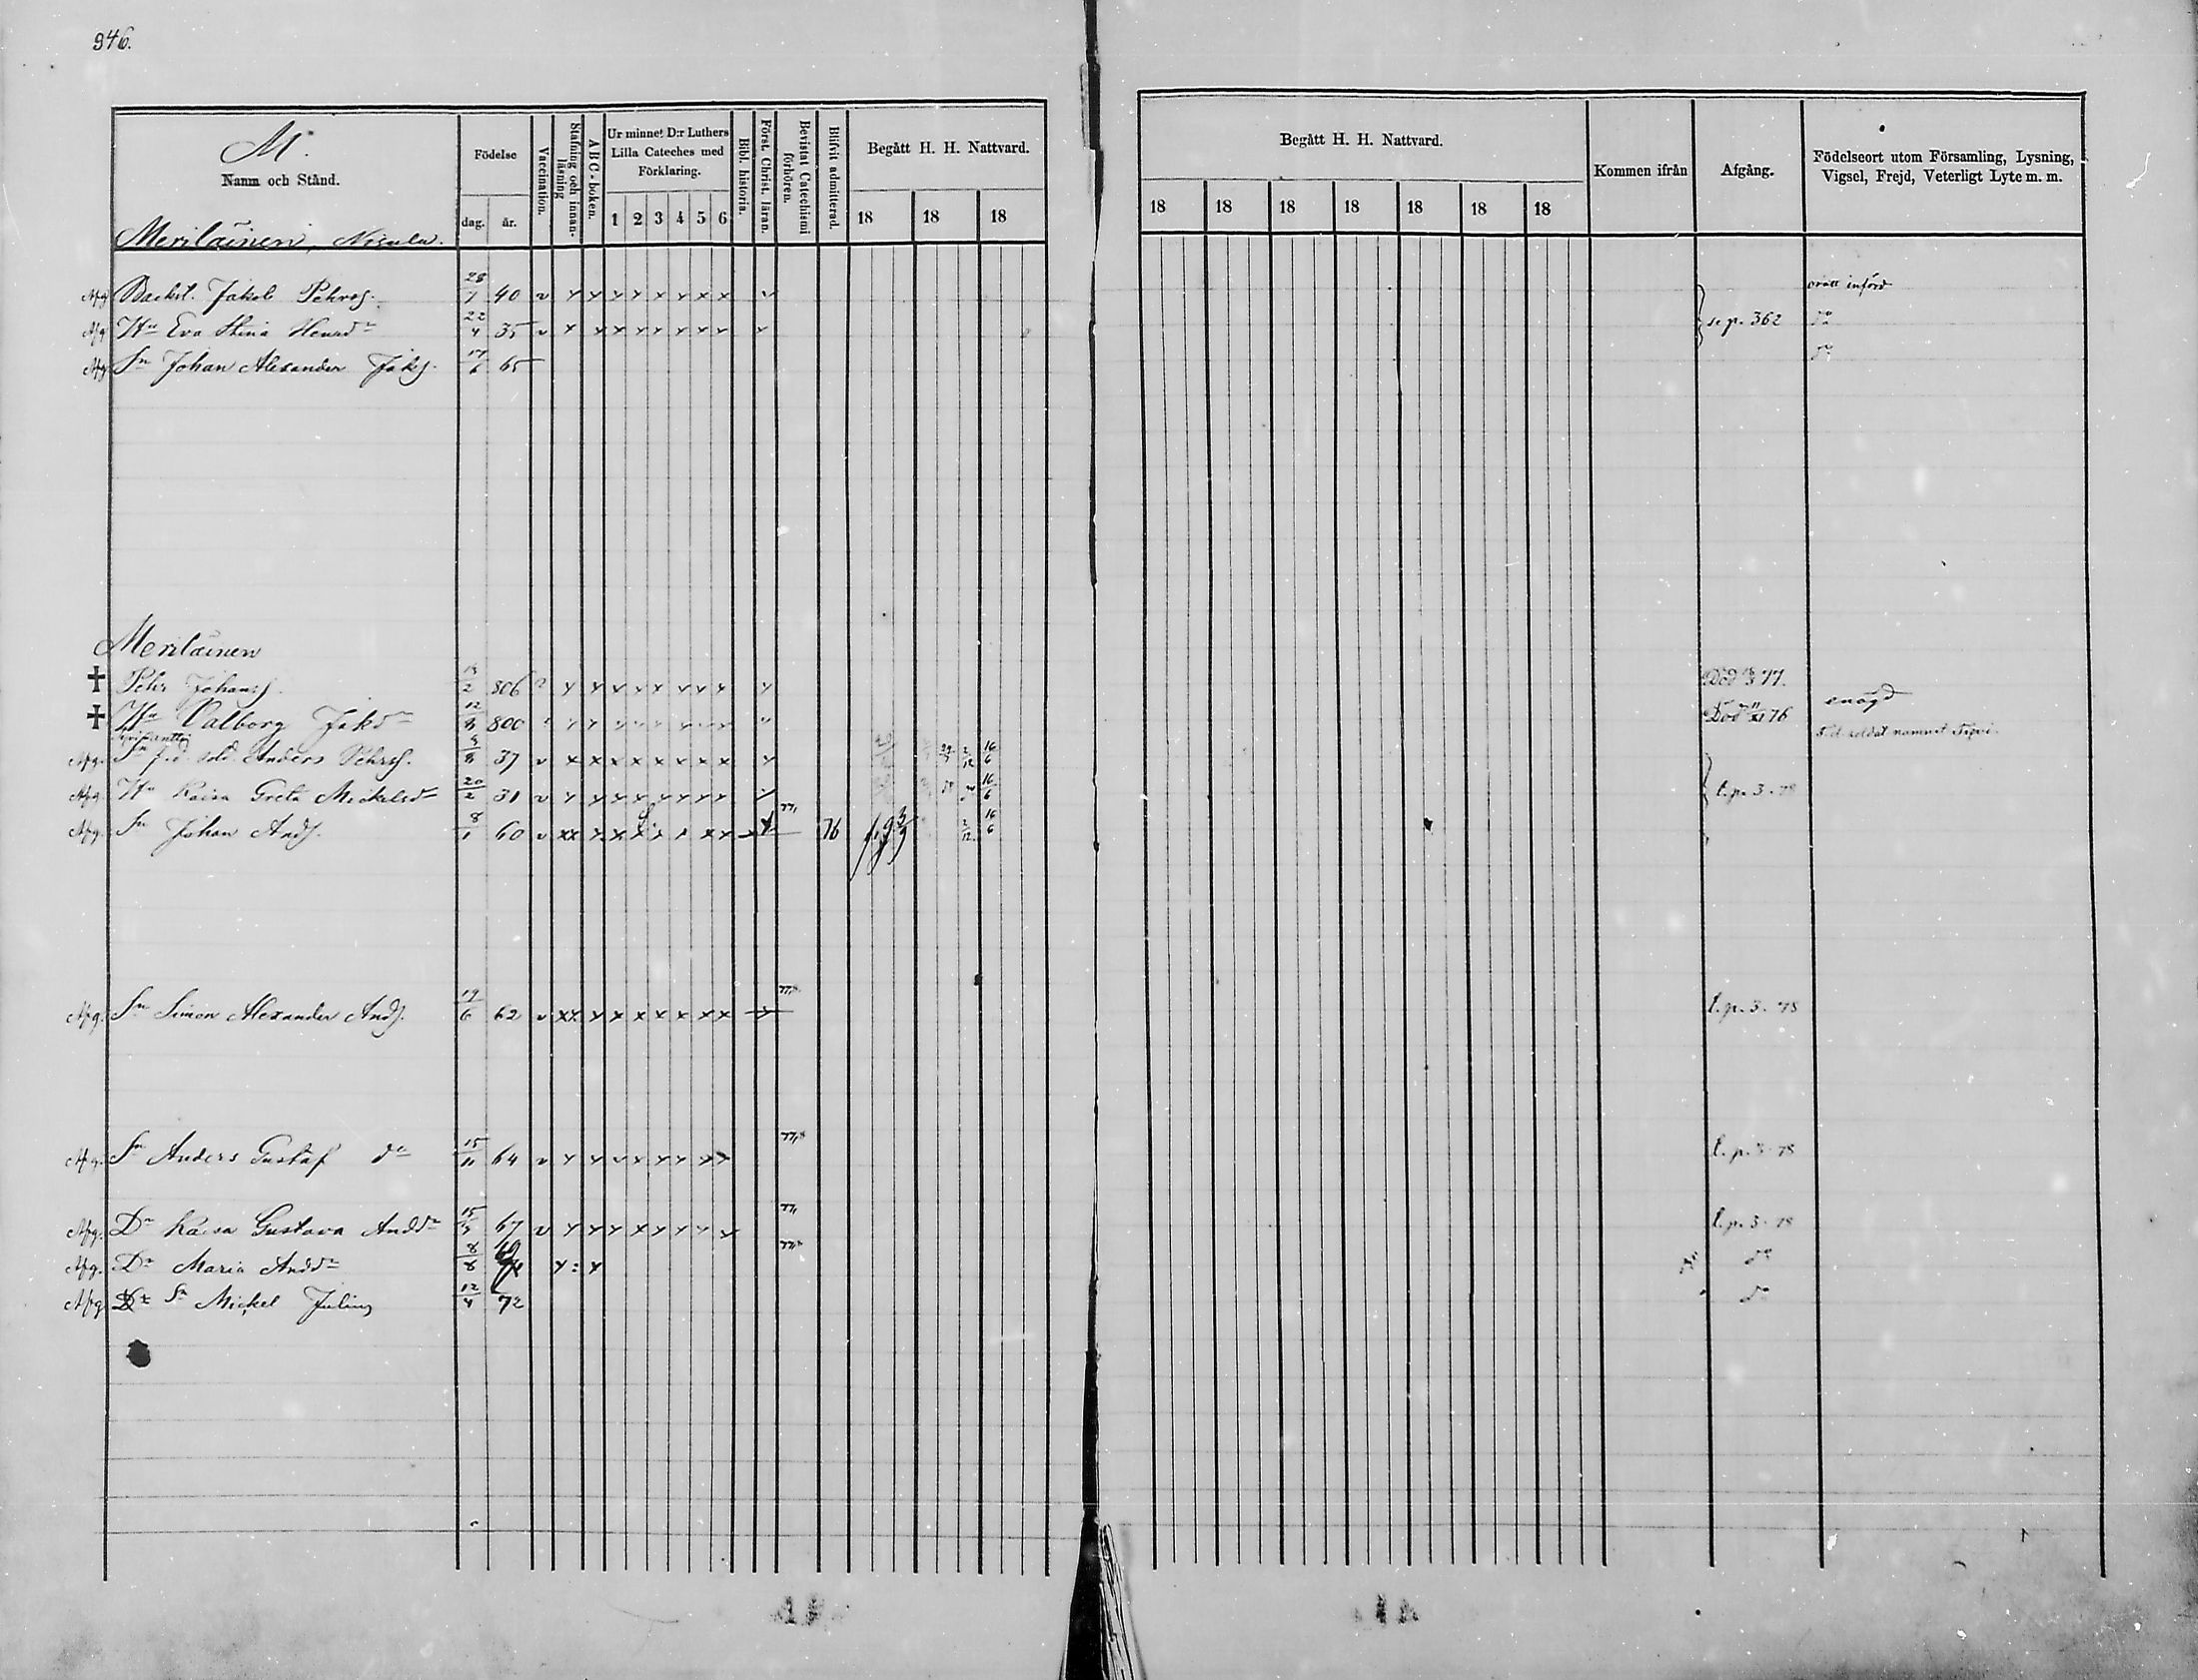 946.
M.
Namn och Stånd.
Födelse
dag.
år.
Vaccination.
Stafning och innanläsning
A B C-boken.
Ur minnet D:r Luthers Lilla Cateches med Förklaring.
1 2 3 4 5 6
Bibl. historia.
Först. Christ. läran.
Bevistat Catechismi förhören.
Blifvit admitterad.
Begått H. H. Nattvard.
18 18 18
Begått H. H. Nattvard.
18 18 18 18 18 18 18
Kommen ifrån
Afgång.
Födelseort utom Församling, Lysning, Vigsel, Frejd, Veterligt Lyte m. m.
Merilainen,
Afg Backst. Jakob Pehrss. 28/7 40 v x x x x x x x x x orätt införd
Afg Hu Eva Stina Henrdr 22/4 35 v x x x x x x x x x se p. 362 do
Afg Sn Johan Alexander Jaks. 65 do
Meriläinen
† Pehr Johanss. 806 Död 77.
† Hu Valborg Jaksdr 800 Död 76 enögd
Afg. Sn f.d. sold. Anders Pehrss. 37 v x x x x x x x x x 2/12 16/6 F.d. soldat namnet
Afg. Hu Kaisa Greta Mickelsdr 20/2 31 v x x x x x x x x x 16/6 t.p. 3. 78
Afg. Sn Johan Ands. 8/1 60 v xx x x x x x x x x 77, 76 2/12 16/6
Afg. Sn Simon Alexander Ands. 19/6 62 v xx x x x x x x x x 77, t.p. 3. 78
Afg. Sn Anders Gustaf do 15/11 64 v x x x x x x x x 77, t.p. 3. 78
Afg. Dr Kaisa Gustava Anddr 67 v x x x x x x x x 77, t.p. 3. 78
Afg. Dr Maria Anddr 8/8 69 x : x 77, do
Afg Sn Mickel Julius 12/4 72 do